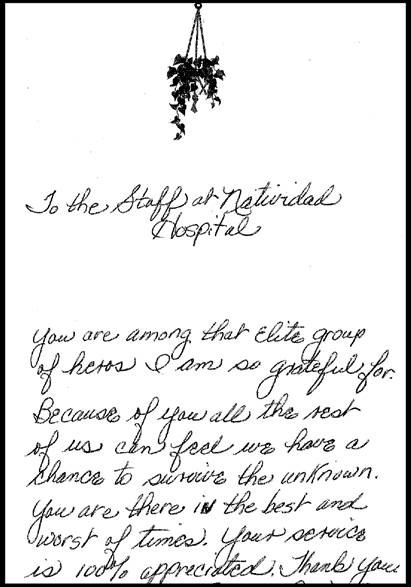 To the Staff at Natividad
Hospital
You are among that Elite group
of heros I am so grateful for.
Because of you all the rest
of us can feel we have a
chance to survive the unknown.
You are there in the best and
worst of times. Your service
is 100% appreciated. Thank you